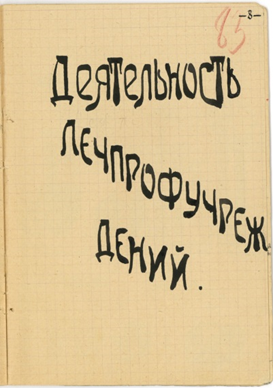 -8-
85
Деятельность
Лечпрофучреж
дений.